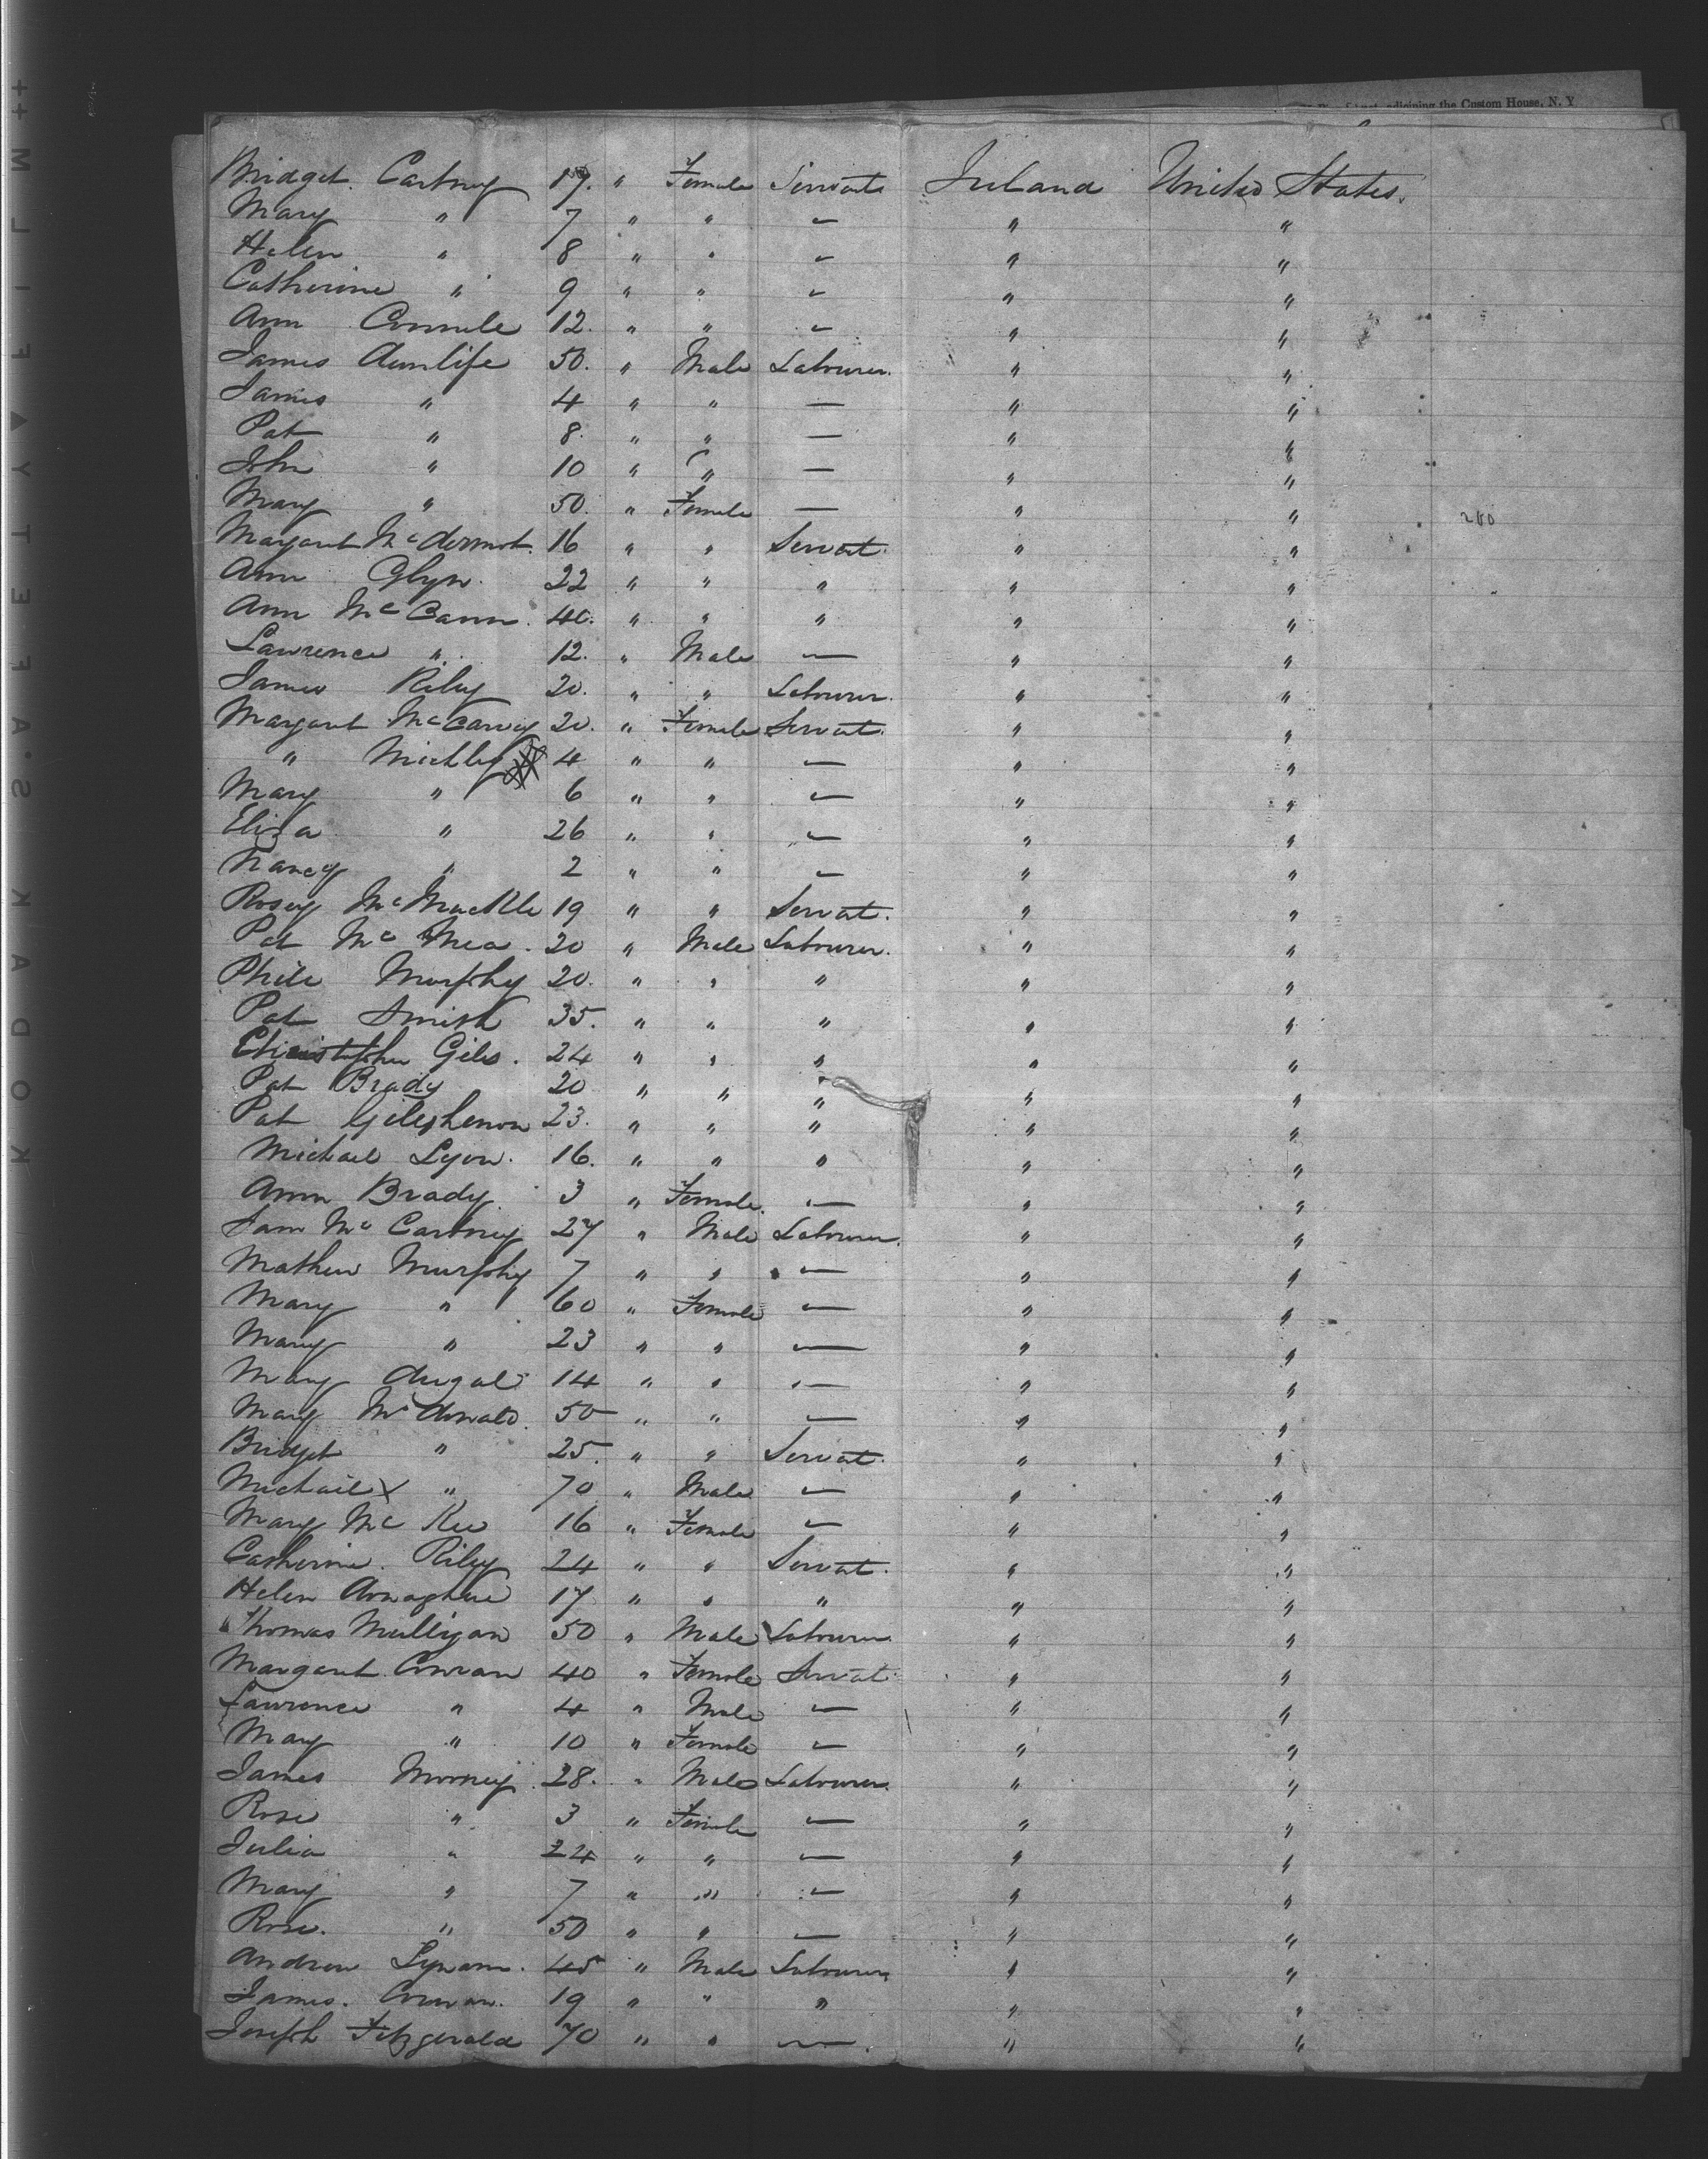 adjoining the Custom House, N. Y
Bridget Cartney 17. " Female Servants Ireland United States.
Mary " 7 " " — " "
Helen " 8 " " — " "
Catherine " 9 " " — " "
Ann 12. " " — " "
James 50. " Male Labourer. " "
James " 4 " " — " "
Pat " 8. " " — " "
John " 10 " " — " "
Mary " 50. " Female — " " 280
Margaret McDermot. 16 " " Servat. " "
Ann Glyn. 22 " " " " "
Ann McCann. 40. " " " " "
Lawrence " 12. " Male — " "
James Riley 20. " " Labourer. " "
Margaret McCarvey 20. " Female Servat. " "
" Michley 4 " " — " "
Mary " 6 " " — " "
Eliza " 26 " " — " "
Nancy " 2 " " — " "
Rosey McMackle 19 " " Servat. " "
Pat Mc 20 " Male Labourer. " "
Phile Murphy 20. " " " " "
Pat Smith 35. " " " " "
Christopher Giles. 24 " " " " "
Pat Brady 20 " " " " "
Pat 23. " " " " "
Michael Lyon. 16. " " " " "
Ann Brady 3 " Female. — " "
Jam McCartney 27 " Male Labourer. " "
Mathew Murphy 7 " " — " "
Mary " 60 " Female — " "
Mary " 23 " " — " "
Mary Dugal 14 " " — " "
Mary McDonald. 50 " " — " "
Bridget " 25. " " Servat. " "
Michael X " 70 " Male — " "
Mary McKee 16 " Female — " "
Catherine. Riley 24 " " Servat. " "
Helen Donaghue 17 " " " " "
Thomas Mulligan 50 " Male Labourer " "
Margaret Conran 40 " Female Servat " "
Lawrence " 4 " Male — " "
Mary " 10 " Female — " "
James Mooney. 28. " Male Labourer. " "
Rose " 3 " Female — " "
Julia " 24 " " — " "
Mary " 7 " " — " "
Rose. " 50 " " — " "
Andrew Lynam. 45 " Male Labourer " "
James. Conran. 19 " " " " "
Joseph Fitzgerald 70 " " — " "
KODAK S.A.F.E.T.Y. ▲ F I L M ++